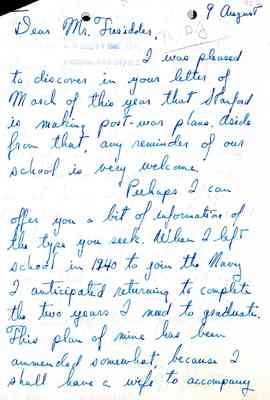 9 August
Dear Mr. Tresidder,
I was pleased
to discover in your letter of
March of this year that Stanford
is making post-war plans. Aside
from that, any reminder of our
school is very welcome.
Perhaps I can
offer you a bit of information of
the type you seek. When I left
school in 1940 to join the Navy
I anticipated returning to complete
the two years I need to graduate.
This plan of mine has been
ammended somewhat, because I
shall have a wife to accompany